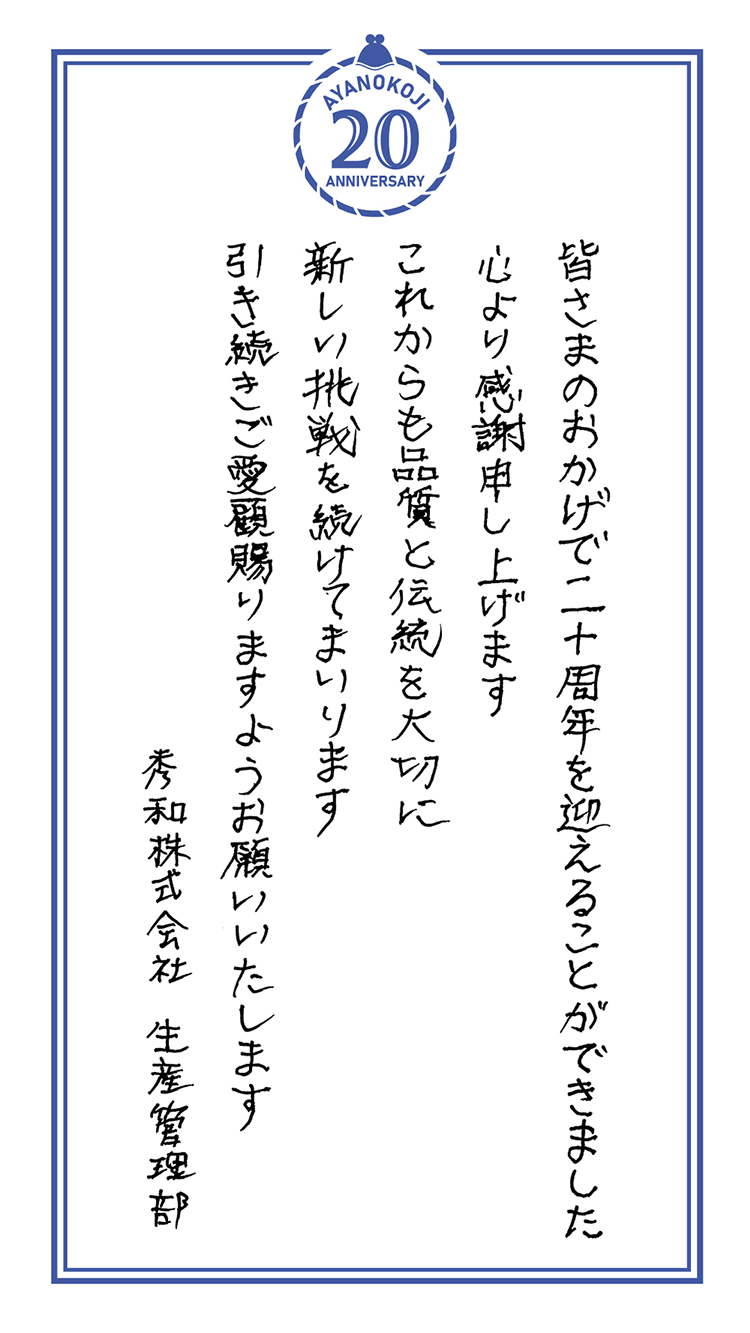 AYANOKOJI
20
ANNIVERSARY
皆さまのおかげで二十周年を迎えることができました
心より感謝申し上げます
これからも品質と伝統を大切に
新しい挑戦を続けてまいります
引き続きご愛顧賜りますようお願いいたします
秀和株式会社 生産管理部